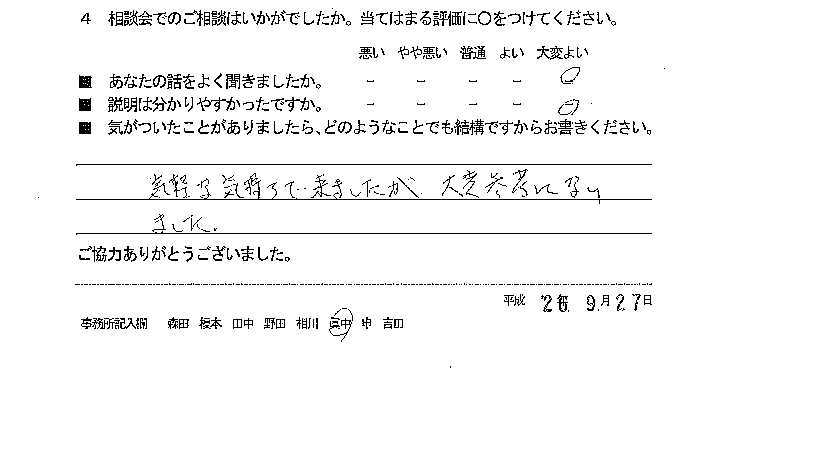 4 相談会でのご相談はいかがでしたか。当てはまる評価に○をつけてください。
悪い やや悪い 普通 よい 大変よい
■ あなたの話をよく聞きましたか。 - - - - ○
■ 説明は分かりやすかったですか。 - - - - ○
■ 気がついたことがありましたら、どのようなことでも結構ですからお書きください。
気軽な気持ちで来ましたが、大変参考になり
ました。
ご協力ありがとうございました。
平成 26 9月27日
事務所記入欄 森田 榎本 田中 野田 相川 眞中 申 吉田